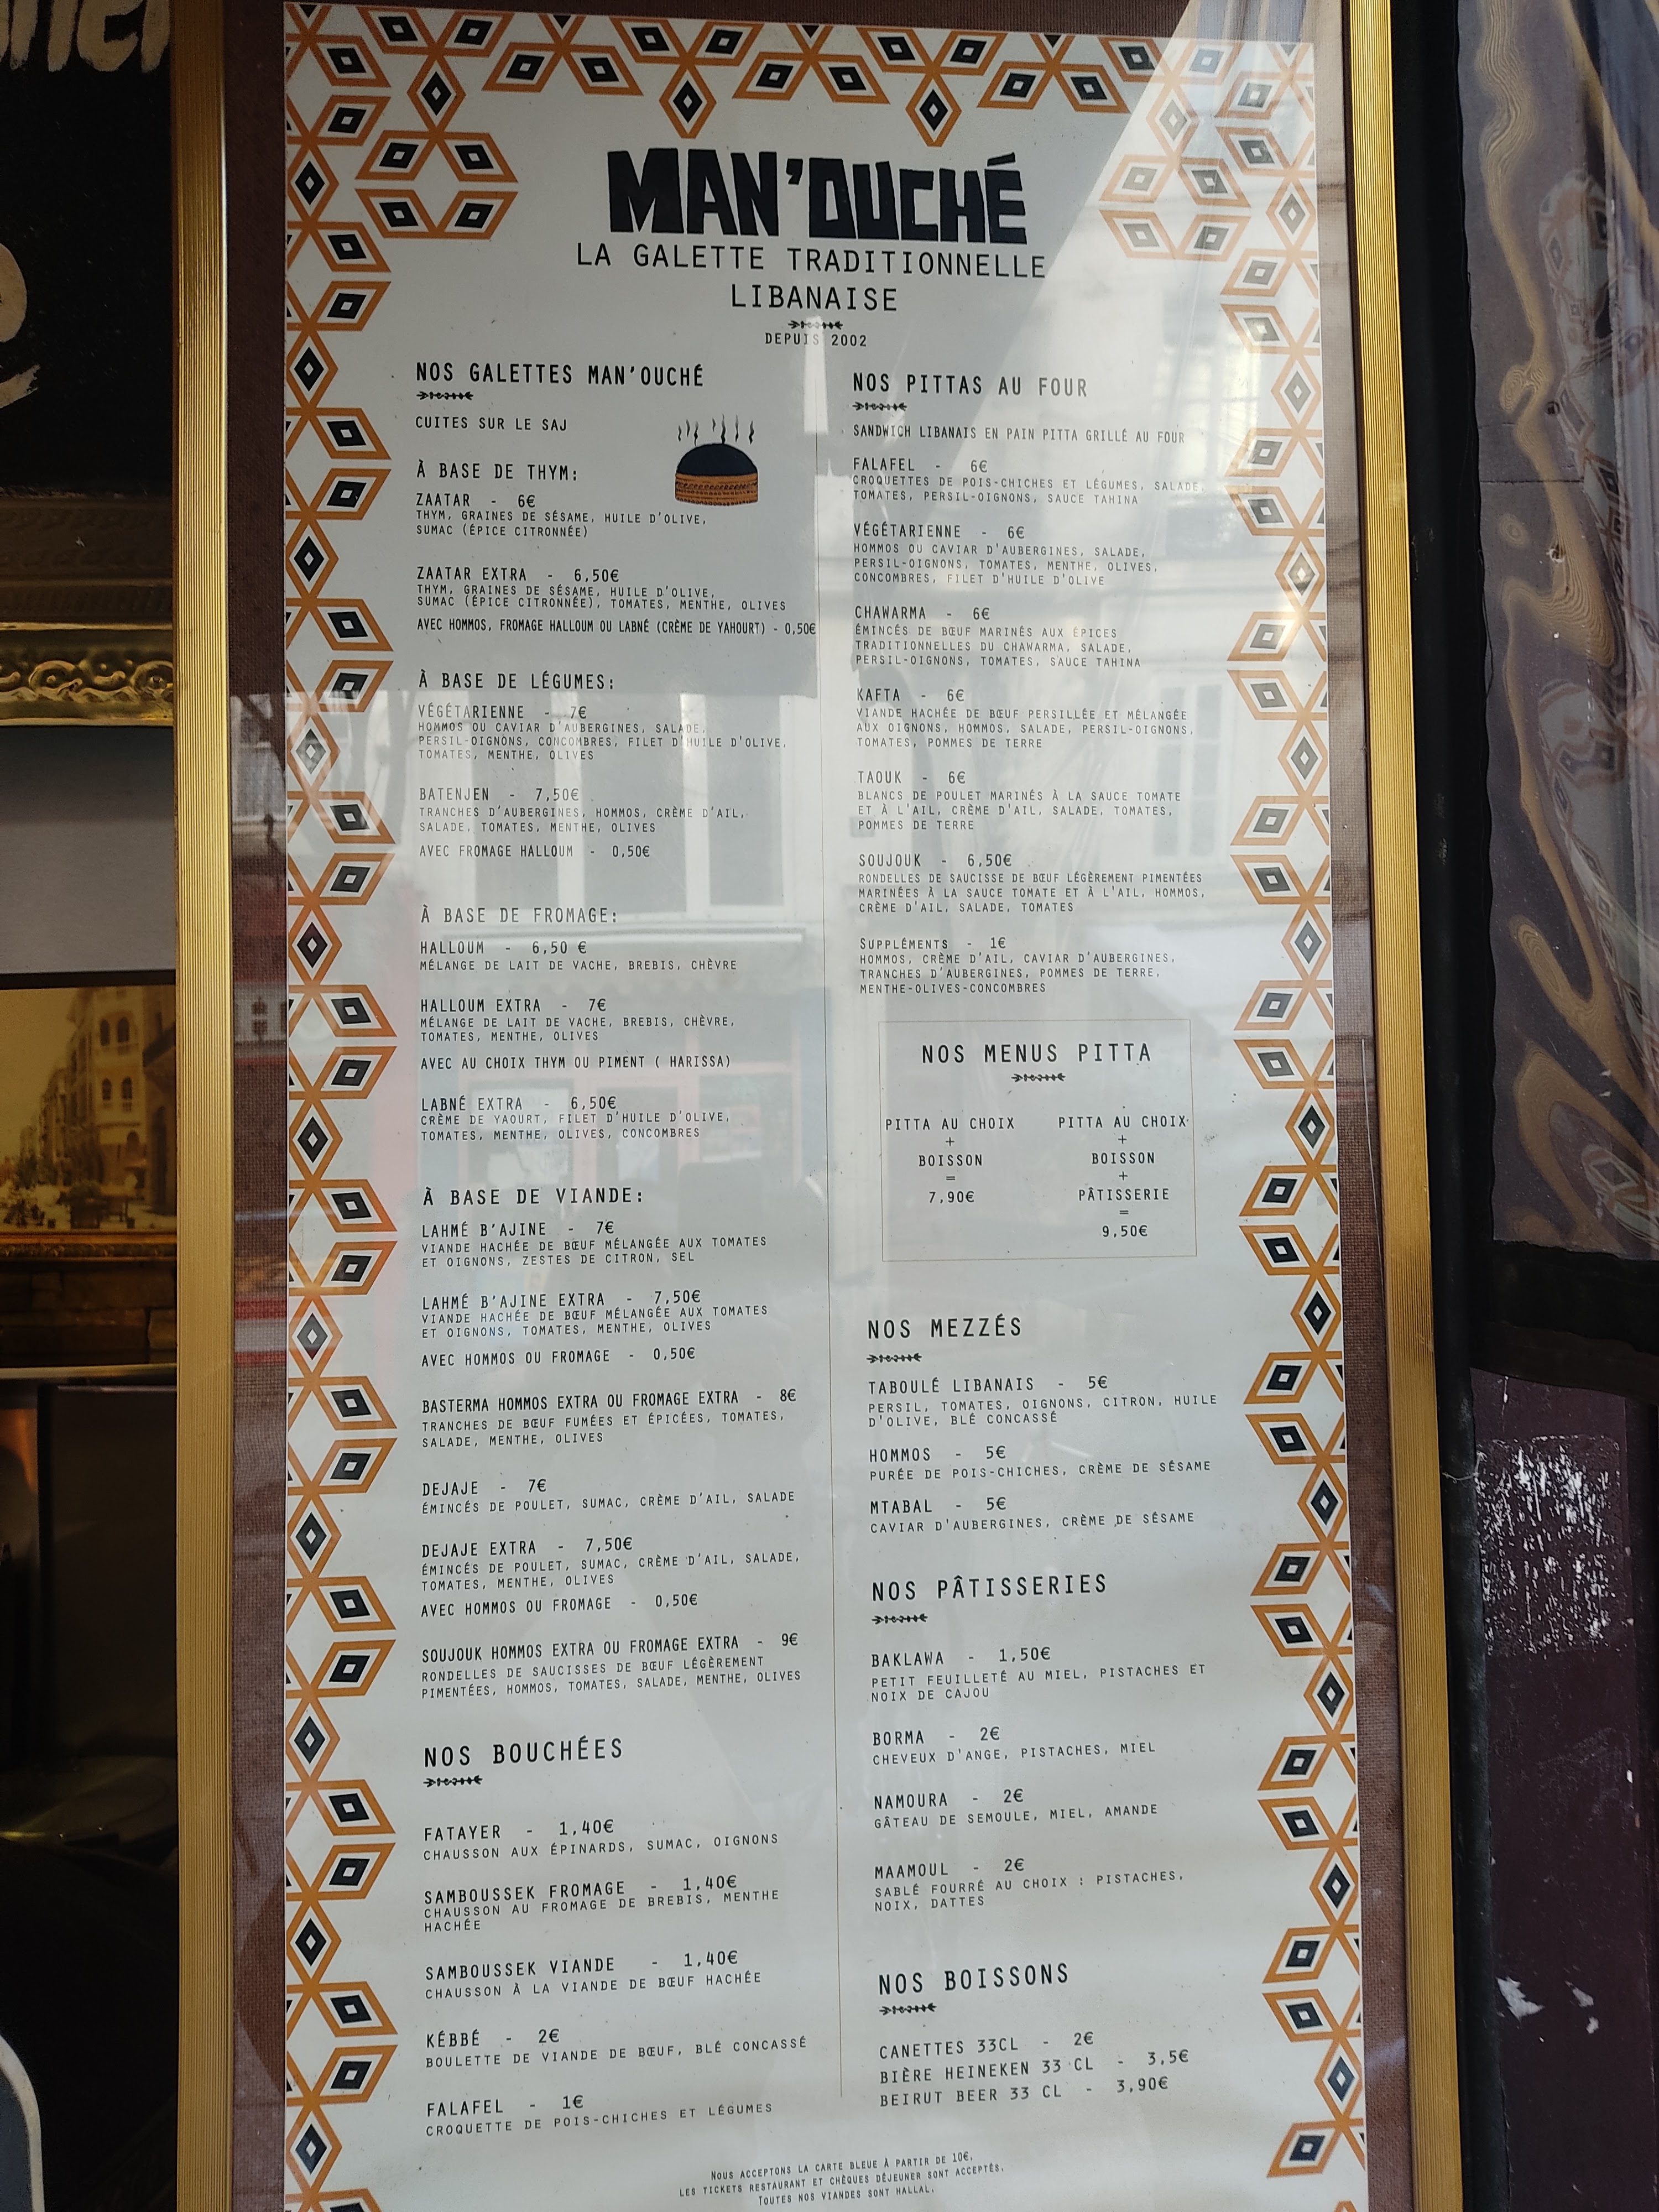 MAN'OUCHÉ
LA GALETTE TRADITIONNELLE
LIBANAISE
DEPUIS 2002
NOS GALETTES MAN'OUCHÉ
CUITES SUR LE SAJ
À BASE DE THYM:
ZAATAR - 6€
THYM, GRAINES DE SÉSAME, HUILE D'OLIVE,
SUMAC (ÉPICE CITRONNÉE)
ZAATAR EXTRA - 6,50€
THYM, GRAINES DE SÉSAME, HUILE D'OLIVE,
SUMAC (ÉPICE CITRONNÉE), TOMATES, MENTHE, OLIVES
AVEC HOMMOS, FROMAGE HALLOUM OU LABNÉ (CRÈME DE YAHOURT) - 0,50€
À BASE DE LÉGUMES:
VÉGÉTARIENNE - 7€
HOMMOS OU CAVIAR D'AUBERGINES, SALADE,
PERSIL-OIGNONS, CONCOMBRES, FILET D'HUILE D'OLIVE,
TOMATES, MENTHE, OLIVES
BATENJEN - 7,50€
TRANCHES D'AUBERGINES, HOMMOS, CRÈME D'AIL,
SALADE, TOMATES, MENTHE, OLIVES
AVEC FROMAGE HALLOUM - 0,50€
À BASE DE FROMAGE:
HALLOUM - 6,50 €
MÉLANGE DE LAIT DE VACHE, BREBIS, CHÈVRE
HALLOUM EXTRA - 7€
MÉLANGE DE LAIT DE VACHE, BREBIS, CHÈVRE,
TOMATES, MENTHE, OLIVES
AVEC AU CHOIX THYM OU PIMENT ( HARISSA)
LABNÉ EXTRA - 6,50€
CRÈME DE YAOURT, FILET D'HUILE D'OLIVE,
TOMATES, MENTHE, OLIVES, CONCOMBRES
À BASE DE VIANDE:
LAHMÉ B'AJINE - 7€
VIANDE HACHÉE DE BŒUF MÉLANGÉE AUX TOMATES
ET OIGNONS, ZESTES DE CITRON, SEL
LAHMÉ B'AJINE EXTRA - 7,50€
VIANDE HACHÉE DE BŒUF MÉLANGÉE AUX TOMATES
ET OIGNONS, TOMATES, MENTHE, OLIVES
AVEC HOMMOS OU FROMAGE - 0,50€
BASTERMA HOMMOS EXTRA OU FROMAGE EXTRA - 8€
TRANCHES DE BŒUF FUMÉES ET ÉPICÉES, TOMATES,
SALADE, MENTHE, OLIVES
DEJAJE - 7€
ÉMINCÉS DE POULET, SUMAC, CRÈME D'AIL, SALADE
DEJAJE EXTRA - 7,50€
ÉMINCÉS DE POULET, SUMAC, CRÈME D'AIL, SALADE,
TOMATES, MENTHE, OLIVES
AVEC HOMMOS OU FROMAGE - 0,50€
SOUJOUK HOMMOS EXTRA OU FROMAGE EXTRA - 9€
RONDELLES DE SAUCISSES DE BŒUF LÉGÈREMENT
PIMENTÉES, HOMMOS, TOMATES, SALADE, MENTHE, OLIVES
NOS BOUCHÉES
FATAYER - 1,40€
CHAUSSON AUX ÉPINARDS, SUMAC, OIGNONS
SAMBOUSSEK FROMAGE - 1,40€
CHAUSSON AU FROMAGE DE BREBIS, MENTHE
HACHÉE
SAMBOUSSEK VIANDE - 1,40€
CHAUSSON À LA VIANDE DE BŒUF HACHÉE
KÉBBÉ - 2€
BOULETTE DE VIANDE DE BŒUF, BLÉ CONCASSÉ
FALAFEL - 1€
CROQUETTE DE POIS-CHICHES ET LÉGUMES
NOS PITTAS AU FOUR
SANDWICH LIBANAIS EN PAIN PITTA GRILLÉ AU FOUR
FALAFEL - 6€
CROQUETTES DE POIS-CHICHES ET LÉGUMES, SALADE,
TOMATES, PERSIL-OIGNONS, SAUCE TAHINA
VÉGÉTARIENNE - 6€
HOMMOS OU CAVIAR D'AUBERGINES, SALADE,
PERSIL-OIGNONS, TOMATES, MENTHE, OLIVES,
CONCOMBRES, FILET D'HUILE D'OLIVE
CHAWARMA - 6€
ÉMINCÉS DE BŒUF MARINÉS AUX ÉPICES
TRADITIONNELLES DU CHAWARMA, SALADE,
PERSIL-OIGNONS, TOMATES, SAUCE TAHINA
KAFTA - 6€
VIANDE HACHÉE DE BŒUF PERSILLÉE ET MÉLANGÉE
AUX OIGNONS, HOMMOS, SALADE, PERSIL-OIGNONS,
TOMATES, POMMES DE TERRE
TAOUK - 6€
BLANCS DE POULET MARINÉS À LA SAUCE TOMATE
ET À L'AIL, CRÈME D'AIL, SALADE, TOMATES,
POMMES DE TERRE
SOUJOUK - 6,50€
RONDELLES DE SAUCISSE DE BŒUF LÉGÈREMENT PIMENTÉES
MARINÉES À LA SAUCE TOMATE ET À L'AIL, HOMMOS,
CRÈME D'AIL, SALADE, TOMATES
SUPPLÉMENTS - 1€
HOMMOS, CRÈME D'AIL, CAVIAR D'AUBERGINES,
TRANCHES D'AUBERGINES, POMMES DE TERRE,
MENTHE-OLIVES-CONCOMBRES
NOS MENUS PITTA
PITTA AU CHOIX
+
BOISSON
=
7,90€
PITTA AU CHOIX
+
BOISSON
+
PÂTISSERIE
=
9,50€
NOS MEZZÉS
TABOULÉ LIBANAIS - 5€
PERSIL, TOMATES, OIGNONS, CITRON, HUILE
D'OLIVE, BLÉ CONCASSÉ
HOMMOS - 5€
PURÉE DE POIS-CHICHES, CRÈME DE SÉSAME
MTABAL - 5€
CAVIAR D'AUBERGINES, CRÈME DE SÉSAME
NOS PÂTISSERIES
BAKLAWA - 1,50€
PETIT FEUILLETÉ AU MIEL, PISTACHES ET
NOIX DE CAJOU
BORMA - 2€
CHEVEUX D'ANGE, PISTACHES, MIEL
NAMOURA - 2€
GÂTEAU DE SEMOULE, MIEL, AMANDE
MAAMOUL - 2€
SABLÉ FOURRÉ AU CHOIX : PISTACHES,
NOIX, DATTES
NOS BOISSONS
CANETTES 33CL - 2€
BIÈRE HEINEKEN 33 CL - 3,5€
BEIRUT BEER 33 CL - 3,90€
NOUS ACCEPTONS LA CARTE BLEUE À PARTIR DE 10€,
LES TICKETS RESTAURANT ET CHÈQUES DÉJEUNER SONT ACCEPTÉS.
TOUTES NOS VIANDES SONT HALLAL.